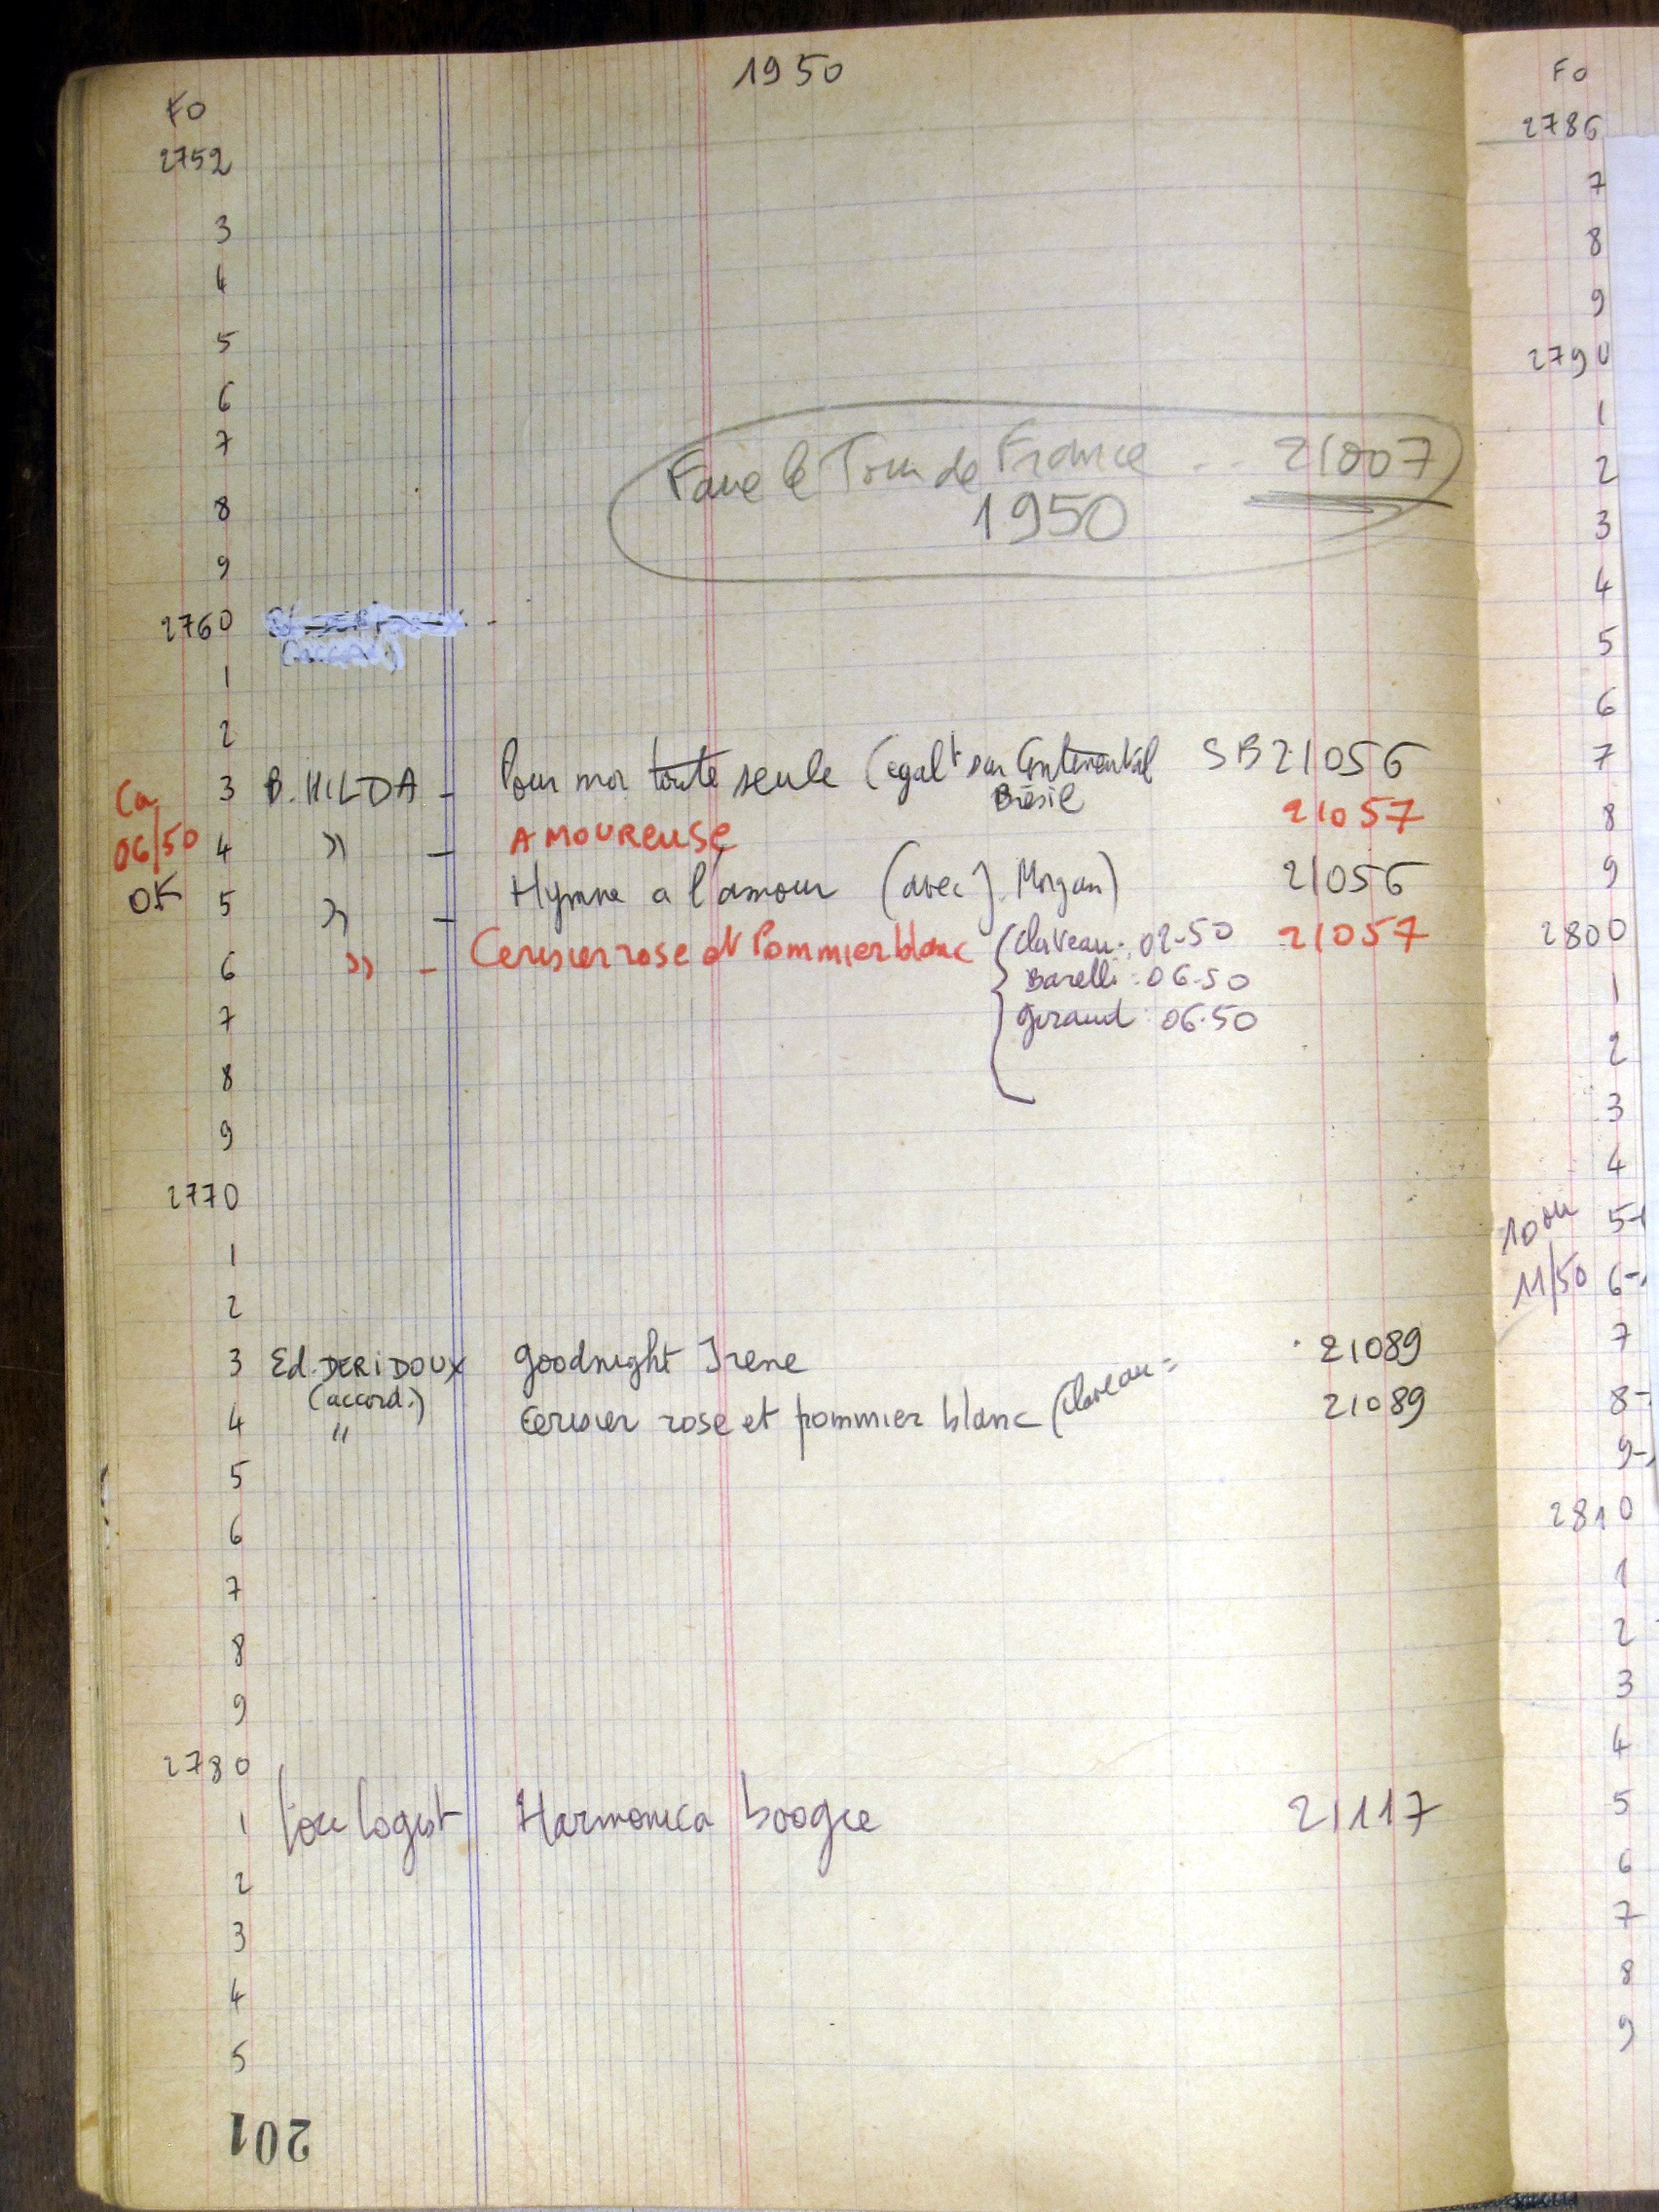 1950
FO
2752
3
4
5
6
7
Faire le Tour de France .. 21007
1950
8
9
2760
1
2
3 B. HILDA - Pour moi toute seule (egalt sur Continental SB 21056
Brésil
Ca 06/50
4 " - AMOUREUSE 21057
OK 5 " - Hymne a l'amour (avec J. Morgan) 21056
6 " - Cerisier rose et Pommier blanc (Claveau : 02-50 21057
Barelli : 06-50
Giraud : 06-50
7
8
9
2770
1
2
3 Ed. DERIDOUX Goodnight Irene 21089
(accord.)
4 " Cerisier rose et pommier blanc (Claveau = 21089
5
6
7
8
9
2780
1 Logist Harmonica boogie 21117
2
3
4
5
201
FO
2786
7
8
9
2790
1
2
3
4
5
6
7
8
9
2800
1
2
3
4
10 ou 5-
11/50 6-
7
8-
9-
2810
1
2
3
4
5
6
7
8
9